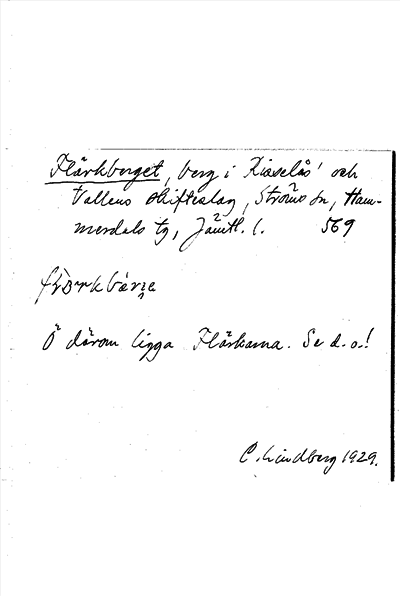 Flärkberget, berg i Risselås' och
Vallens skifteslag, Ströms sn, Ham-
merdals tg, Jämtl. l. 569
Ö därom ligga Flärkarna. Se d.o.!
C. Lindberg 1929.